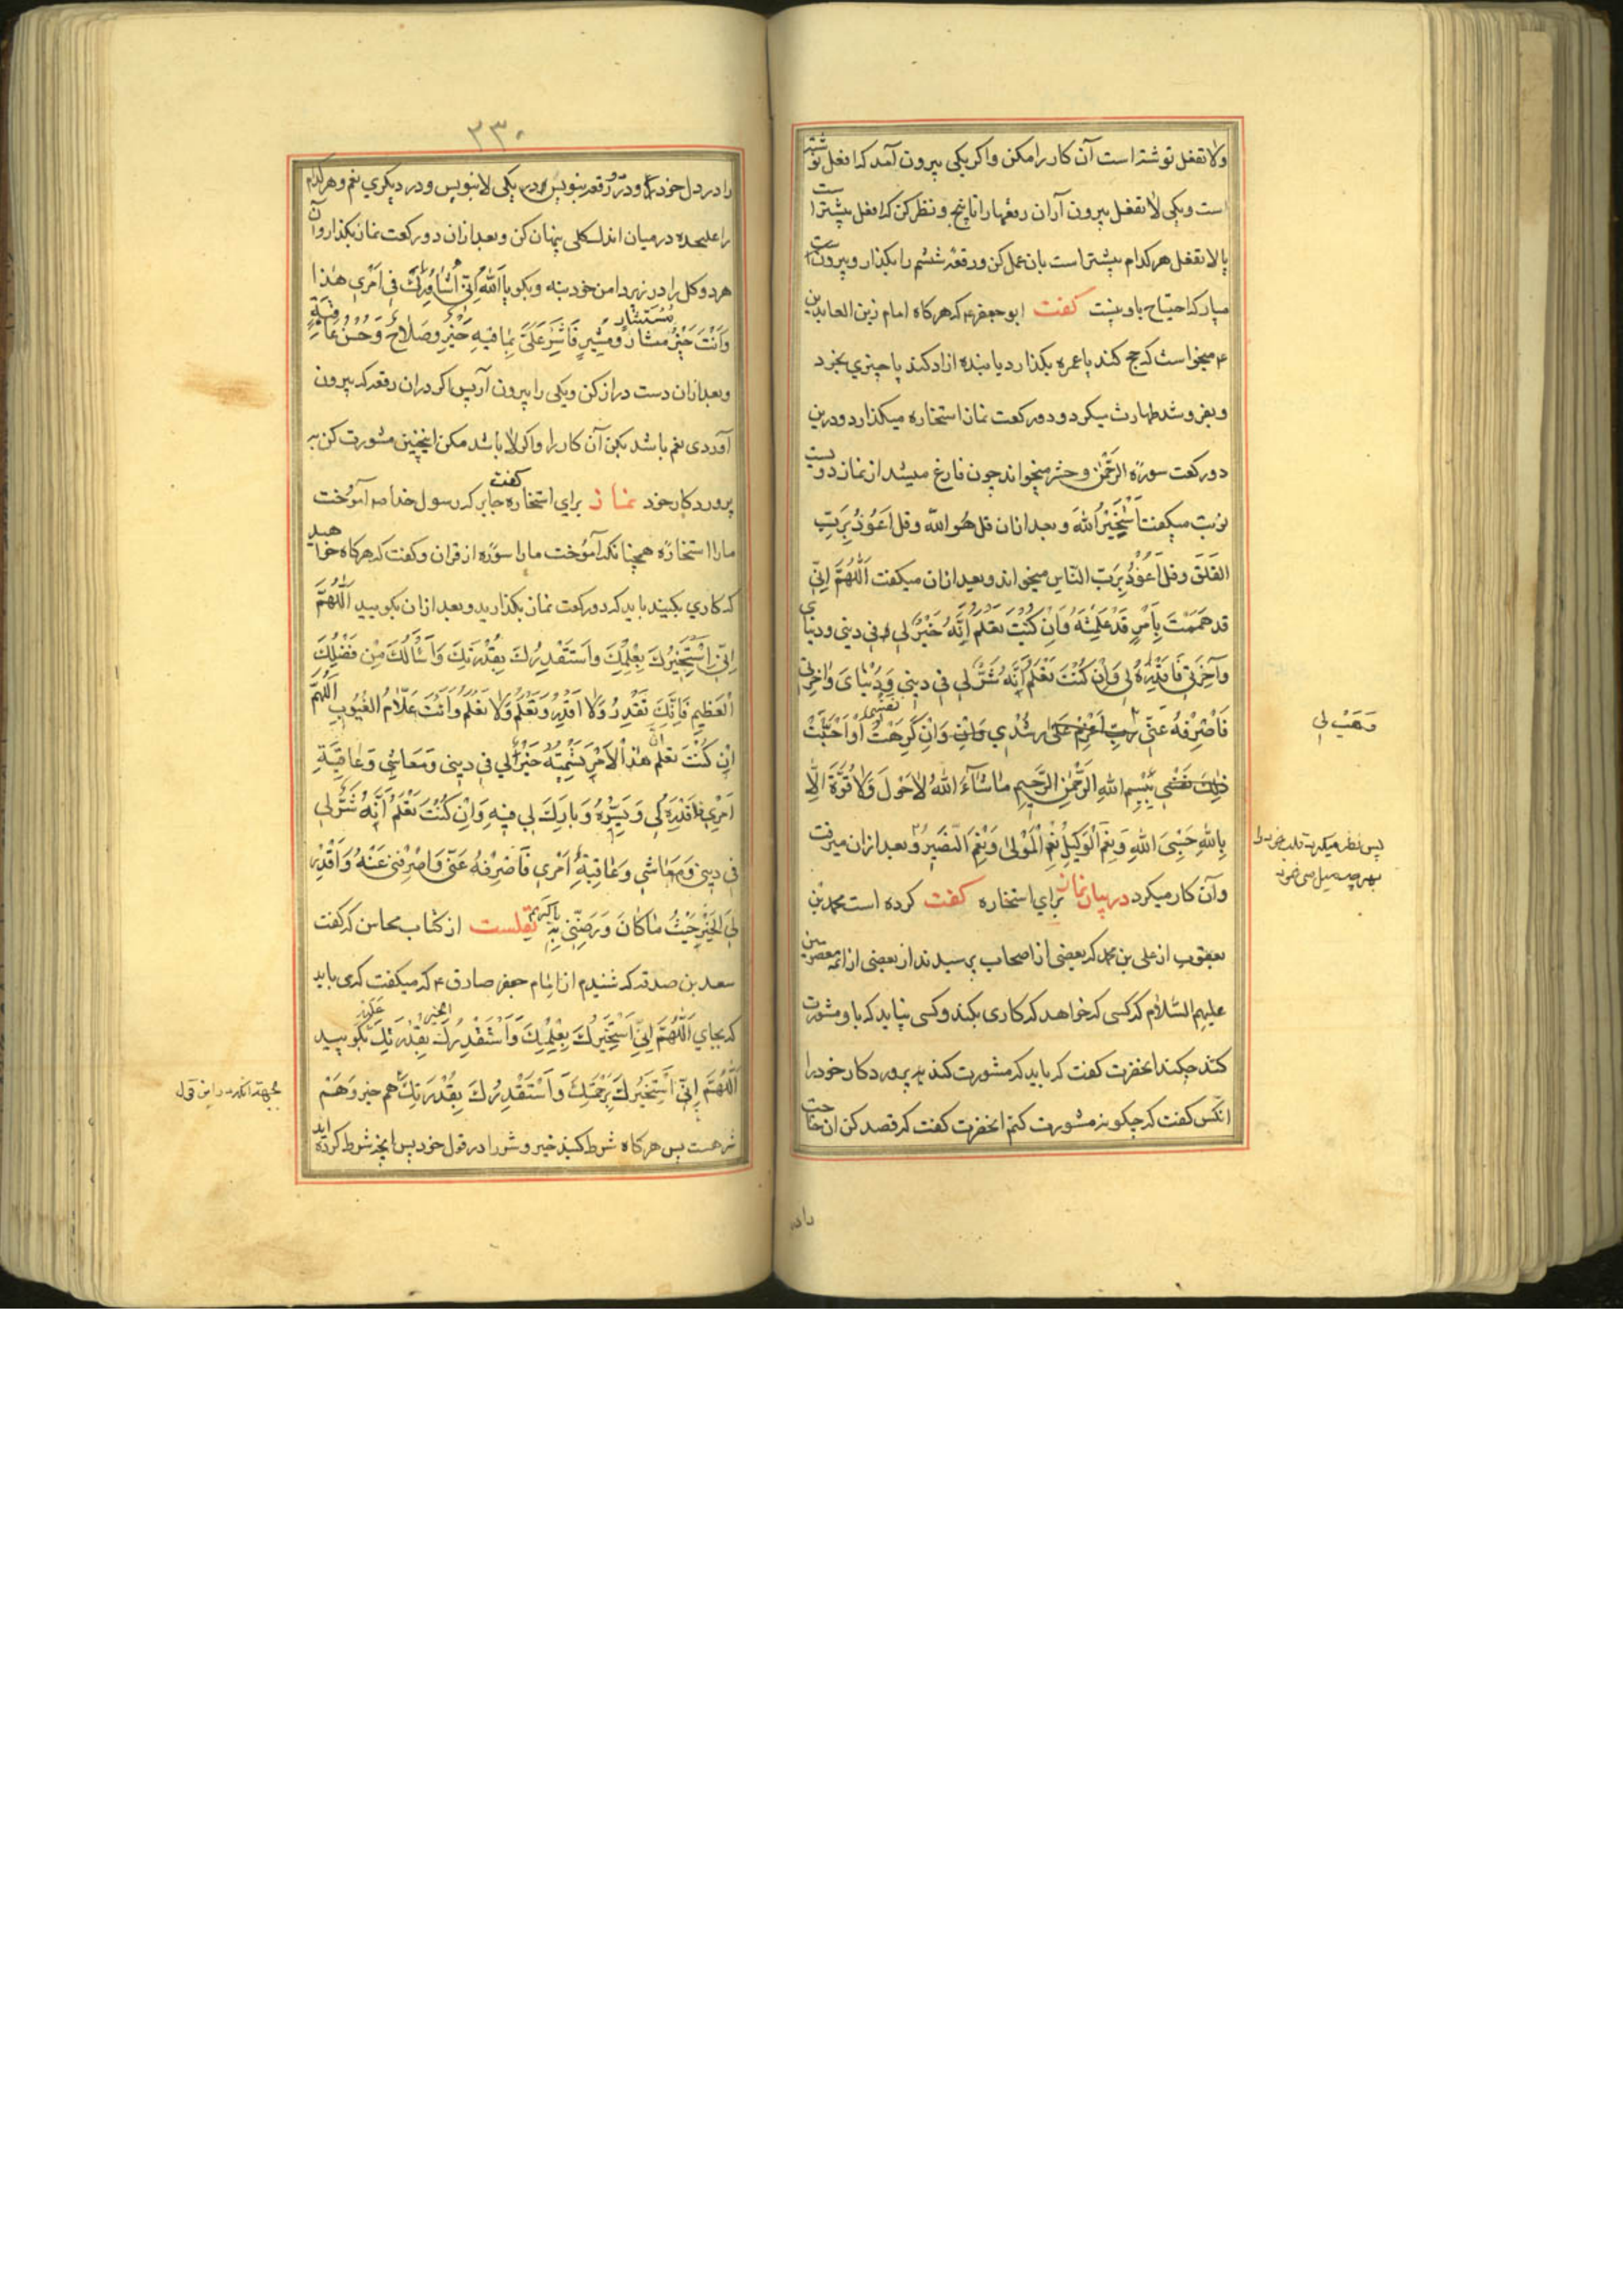 ولا تفعل نوشته است آن کار را مکن واکر یکی بیرون آمد که افعل نوشته
است ویکی لا تفعل بیرون آر ازان رقعها را تا پنج ونظر کن که افعل بیشتر است
یا لا تفعل هر کدام بیشتر است بان عمل کن ورقعه ششم را بکذار وبیرون
میار که احتیاج باو نیست کفت ابو جعفر ع که هرکاه امام زین العابدین
ع میخواست که حج کند یا عمره بکذارد یا بنده ازاد کند یا چیزی بخرد
وبفروشد طهارت میکرد ودو رکعت نماز استخاره میکذارد ودرین
دو رکعت سوره الرَّحْمٰن وحشر میخواند چون فارغ میشد از نماز دویست
نوبت میکفت اَسْتَخیرُ اللهَ وبعد ازان قل هُو اللّه وقل اَعُوذُ بِرَبِّ
الفَلَق وقل اَعُوذُ بِرَبّ النّاس میخواند وبعد ازان میکفت اَللّٰهُمَّ اِنّی
قد هَمَمْتَ بِاَمْرٍ قَدْ عَلِمْتَهُ فَاِنْ كُنْتَ تعْلَمُ اَنَّهُ خَيْرٌ لی فی دینی ودنیای
وَآخِرَتی فَاقْدِرْهُ لی وَاِنْ كُنْتَ تَعْلَمُ اَنَّهُ شَرٌّ لی فی دینی وَدُنْیایَ وَاٰخِرَتی
فَاصْرِفْهُ عَنّی رَبِّ اعْزِمْ عَلیٰ رُشْدی وَاِنْ وَاِنْ كَرِهَتْ اَوْ اَحَبَّتْ
ذٰلِكَ نَفْسی بِبِسْمِ اللهِ الرَّحْمٰنِ الرَّحیمِ مٰا شٰآءَ اللهُ لاٰ حَوْلَ وَلاٰ قُوَّةَ اِلّٰا
بِاللهِ حَسْبِیَ اللهُ وَنِعْمَ الْوَكیلُ نِعْمَ الْمَوْلیٰ وَنِعْمَ النَّصیرُ وبعد ازان میرفت
وآن کار میکرد در بیان نماز برای استخاره کفت کرده است محمد بن
یعقوب از علی بن محمد که بعضی از اصحاب پرسیدند از بعضی از ائمه معصومین
علیهم السّلام که کسی که خواهد که کاری بکند وکسی نیابد که باو مشورت
کند چکند انحضرت کفت که باید که مشورت کند به پروردکار خود را
انکس کفت که چکونه مشورت کنم انحضرت کفت که قصد کن ان حاجت
داد
وَهَبْ لی
پس نظر میکرد
بهر چه میل می نمود
٣٣٠
را در دل خود ودر دو رقعه بنویس در یکی لا بنویس ودر دیکری نعم وهر کدام
را علیحده در میان اندک کلی پنهان کن وبعد ازان دو رکعت نماز بکذار وآن
هر دو کل را در زیر دامن خود بنه وبکو یا اَللهُ اِنّی اُشٰاوِرُكَ فی اَمْری هٰذا
وَاَنْتَ خَيْرُ مُسْتَشٰارٍ ومُشیرٍ فَاَشِرْ عَلَیَّ بِمٰا فیهِ خَيْرٌ وصَلاٰحٌ وَحُسْنُ عٰاقِبَةٍ
وبعد ازان دست دراز کن ویکی را بیرون آر پس اکر دران رقعه که بیرون
آوردی نعم باشد بکن آن کار را واکر لا باشد مکن اینچنین مشورت کن به
پروردکار خود نماز برای استخاره کفت جابر که رسول خدا ص آموُخت
مارا استخاره همچنانکه آموُخت مارا سوره از قران وکفت که هرکاه خواهید
که کاری بکنید باید که دو رکعت نماز بکذارید وبعد ازان بکویید اَللّٰهُمَّ
اِنّی اَسْتَخیرُكَ بِعِلْمِكَ واَسْتَقْدِرُكَ بِقُدْرَتِكَ وَاَسْأَلُكَ مِنْ فَضْلِكَ
الْعَظیمِ فَاِنَّكَ تَقْدِرُ وَلاٰ اَقْدِرُ وَتَعْلَمُ وَلاٰ اَعْلَمُ وَاَنْتَ عَلاّٰمُ الغُیُوبِ اَللّٰهُمَّ
اِنْ كُنْتَ تعْلَمُ اَنَّ هٰذَا الاَمْرَ تُسَمّیهُ خَيْرٌ لی فی دینی وَمَعَاشی وَعٰاقِبَةِ
اَمْری فَاقْدِرْهُ لی وَيَسِّرْهُ وَبٰارِكْ لی فیهِ وَاِنْ كُنْتَ تَعْلَمُ اَنَّهُ شَرٌّ لی
فی دینی وَمَعٰاشی وَعٰاقِبَةِ اَمْری فَاصْرِفْهُ عَنّی وَاصْرِفْنی عَنْهُ وَاقْدِرْ
لِیَ الْخَيْرَ حَيْثُ مٰا كٰانَ وَرَضِّنی بِهِ نقلست از کتاب محاسن که کفت
سعد بن صدقه که شنیدم از امام جعفر صادق ع که میکفت که می باید
که بجای اَللّٰهُمَّ اِنّی اَسْتَخیرُكَ بِعِلْمِكَ وَاَسْتَقْدِرُكَ بِقُدْرَتِكَ بکویید
اَللّٰهُمَّ اِنّی اَسْتَخیرُكَ بِرَحْمَتِكَ وَاَسْتَقْدِرُكَ بِقُدْرَتِكَ هم خیر وهم
شر هست پس هرکاه شرط کنید خیر وشر را در قول خود پس انچه شرط کرده اید
بجهة آنکه در این قول